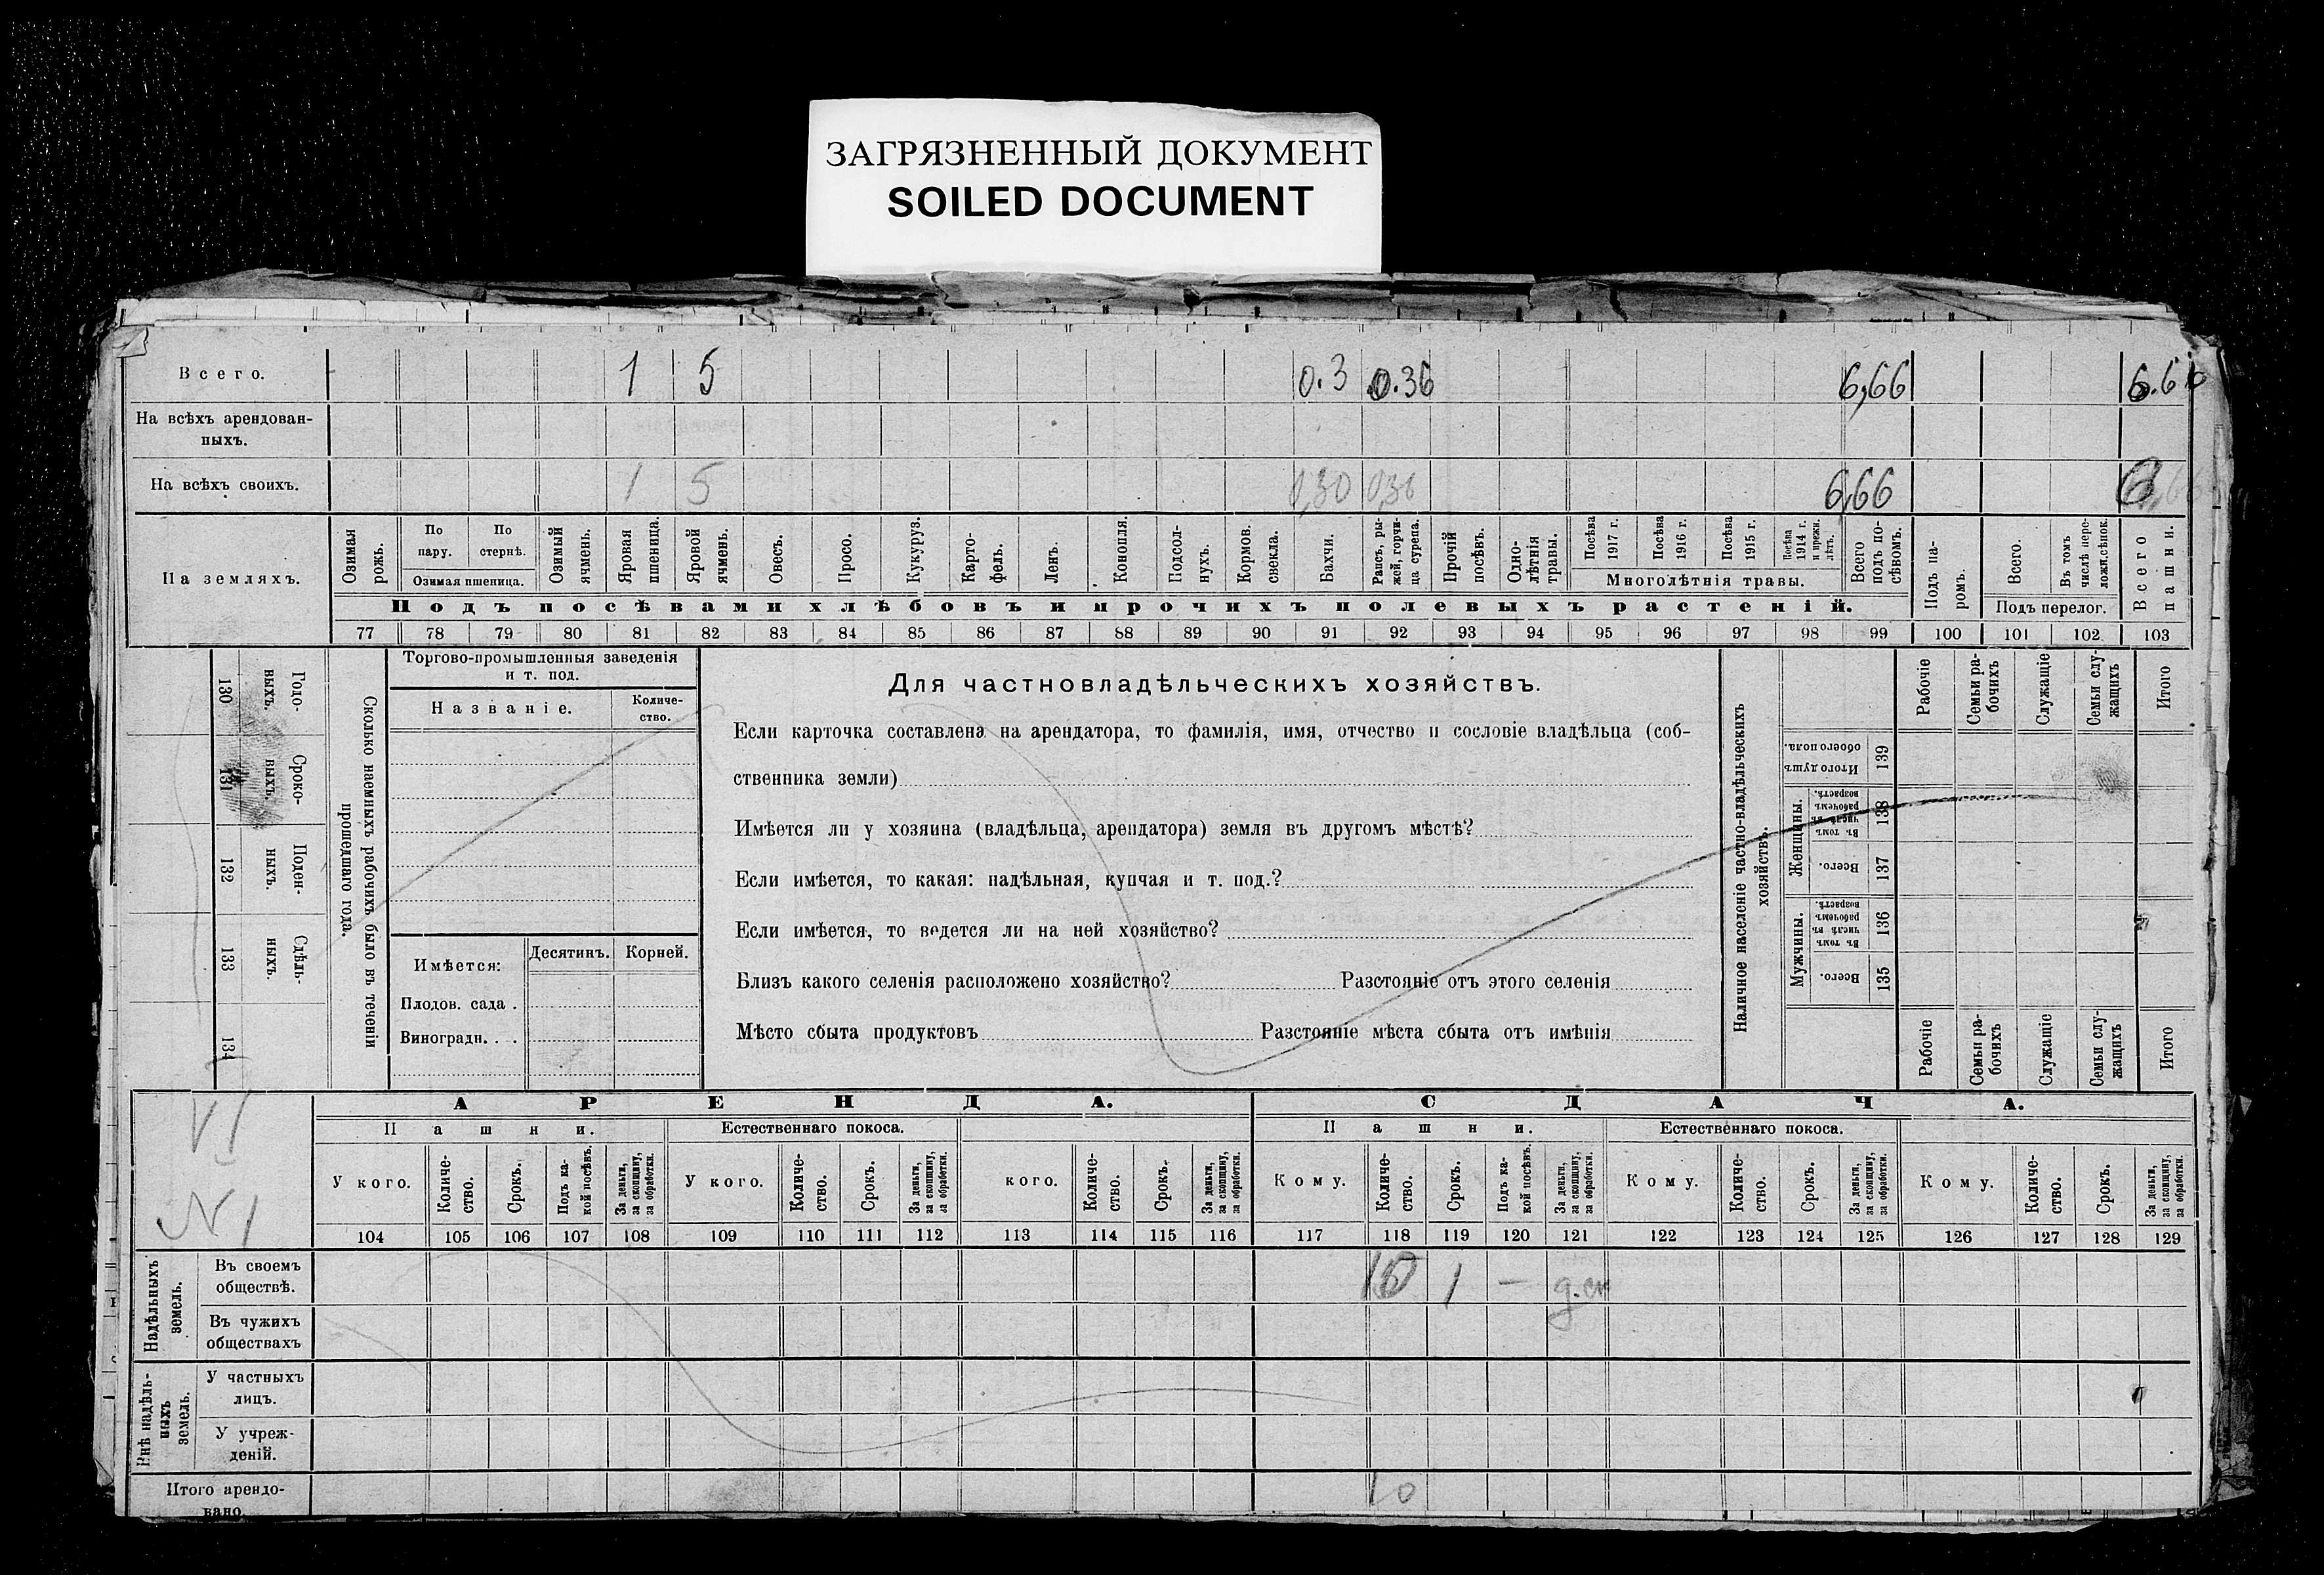 ЗАГРЯЗНЕННЫЙ ДОКУМЕНТ
SOILED DOCUMENT
Всего. 1 5 0.3 0.36 6,66 6.6
На всѣхъ арендован-
ныхъ.
На всѣхъ своихъ. 1 5 0,30 0,36 6,66
На земляхъ.
Озимая рожь.
По пару.
По стернѣ.
Озимая пшеница.
Озимый ячмень.
Яровая пшеница.
Яровой ячмень.
Овесъ.
Просо.
Кукуруз.
Карто-
фель.
Ленъ.
Конопля.
Подсол-
нухъ.
Кормов.
свекла.
Бахчи.
Рапсъ, ры-
жей, горчи-
ца сурепа.
Прочій
посѣвъ.
Одно-
лѣтнія
травы.
Посѣва
1917 г.
Посѣва
1916 г.
Посѣва
1915 г.
Посѣва
1914 г.
и прежн.
лѣтъ.
Многолѣтнія травы.
Всего
подъ по-
сѣвомъ.
Подъ па-
ромъ.
Всего.
Въ томъ
числѣ пере-
ложн.сѣнок.
Подъ перелог.
Всего
пашни.
Подъ посѣвами хлѣбовъ и прочихъ полевыхъ растеній.
77 78 79 80 81 82 83 84 85 86 87 88 89 90 91 92 93 94 95 96 97 98 99 100 101 102 103
130 Годо-
ныхъ.
131 Сроко-
ныхъ.
132 Поден-
ныхъ.
133 Сдѣль-
ныхъ.
134
Сколько наемныхъ рабочихъ было въ теченіи
прошедшаго года.
Торгово-промышленныя заведенія
и т. под.
Названіе.
Количе-
ство.
Имѣется:
Десятинъ. Корней.
Плодов. сада .
Виноградн. . .
Для частновладѣльческихъ хозяйствъ.
Если карточка составлена на арендатора, то фамилія, имя, отчество и сословіе владѣльца (соб-
ственника земли)
Имѣется ли у хозяина (владѣльца, арендатора) земля въ другомъ мѣстѣ?
Если имѣется, то какая: надѣльная, купчая и т. под.?
Если имѣется, то ведется ли на ней хозяйство?
Близъ какого селенія расположено хозяйство? Разстояніе отъ этого селенія
Мѣсто сбыта продуктовъ Разстояніе мѣста сбыта отъ имѣнія
Наличное населеніе частно-владѣльческихъ
хозяйствъ.
Рабочіе
Семьи ра-
бочихъ
Служащіе
Семьи слу-
жащихъ
Итого
Итого душъ
обоего пола.
139
Женщины.
Въ томъ
числѣ въ
рабочемъ
возрастѣ.
138
Всего.
137
Мужчины.
Въ томъ
числѣ въ
рабочемъ
возрастѣ.
136
Всего.
135
Рабочіе
Семьи ра-
бочихъ
Служащіе
Семьи слу-
жащихъ
Итого
VI
N 1
АРЕНДА. СДАЧА.
Пашни. Естественнаго покоса. Пашни. Естественнаго покоса.
У кого.
Количе-
ство.
Срокъ.
Подъ ка-
кой посѣвъ.
За деньги,
за скопщину,
за обработки.
У кого.
Количе-
ство.
Срокъ.
За деньги,
за скопщину,
за обработки.
кого.
Количе-
ство.
Срокъ.
За деньги,
за скопщину,
за обработки.
Кому.
Количе-
ство.
Срокъ.
Подъ ка-
кой посѣвъ.
За деньги,
за скопщину,
за обработки.
Кому.
Количе-
ство.
Срокъ.
За деньги,
за скопщину,
за обработки.
Кому.
Количе-
ство.
Срокъ.
За деньги,
за скопщину,
за обработки.
104 105 106 107 108 109 110 111 112 113 114 115 116 117 118 119 120 121 122 123 124 125 126 127 128 129
Надѣльныхъ
земель.
Въ своемъ
обществѣ.
10 1 —
Въ чужихъ
обществахъ
Внѣ надѣль-
ныхъ
земель.
У частныхъ
лицъ.
У учреж-
деній.
Итого арендо-
вано. 10